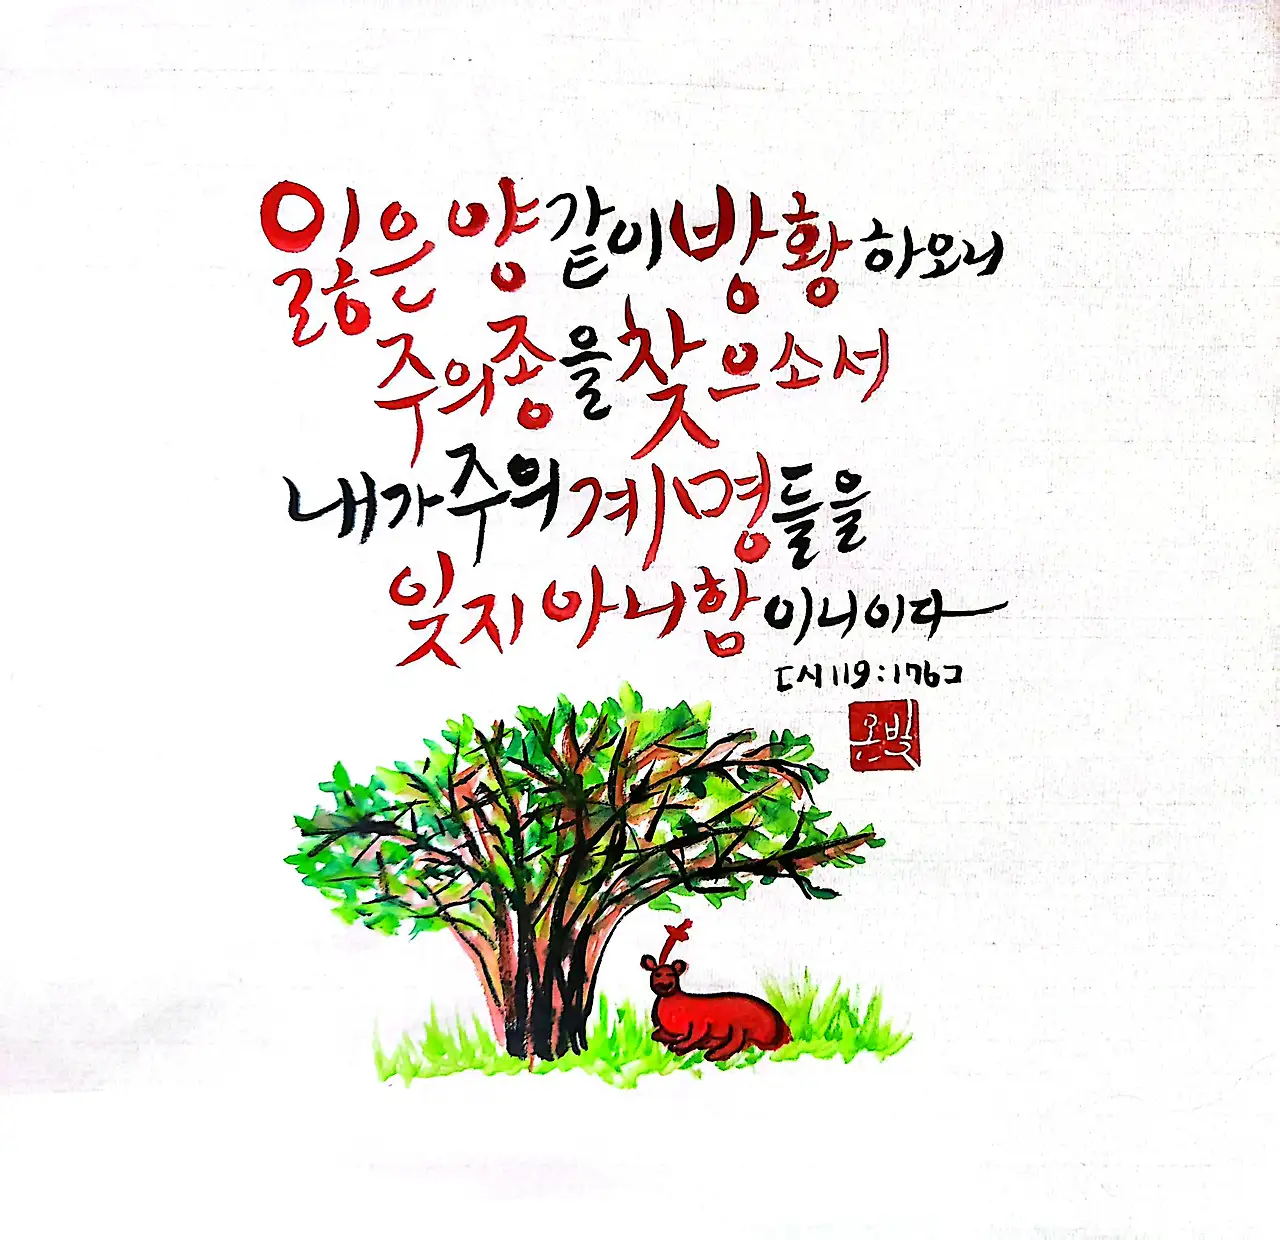 잃은 양 같이 방황 하오니
주의 종을 찾으소서
내가 주의 계명들을
잊지 아니함이니이다
[시 119:176]
은빛